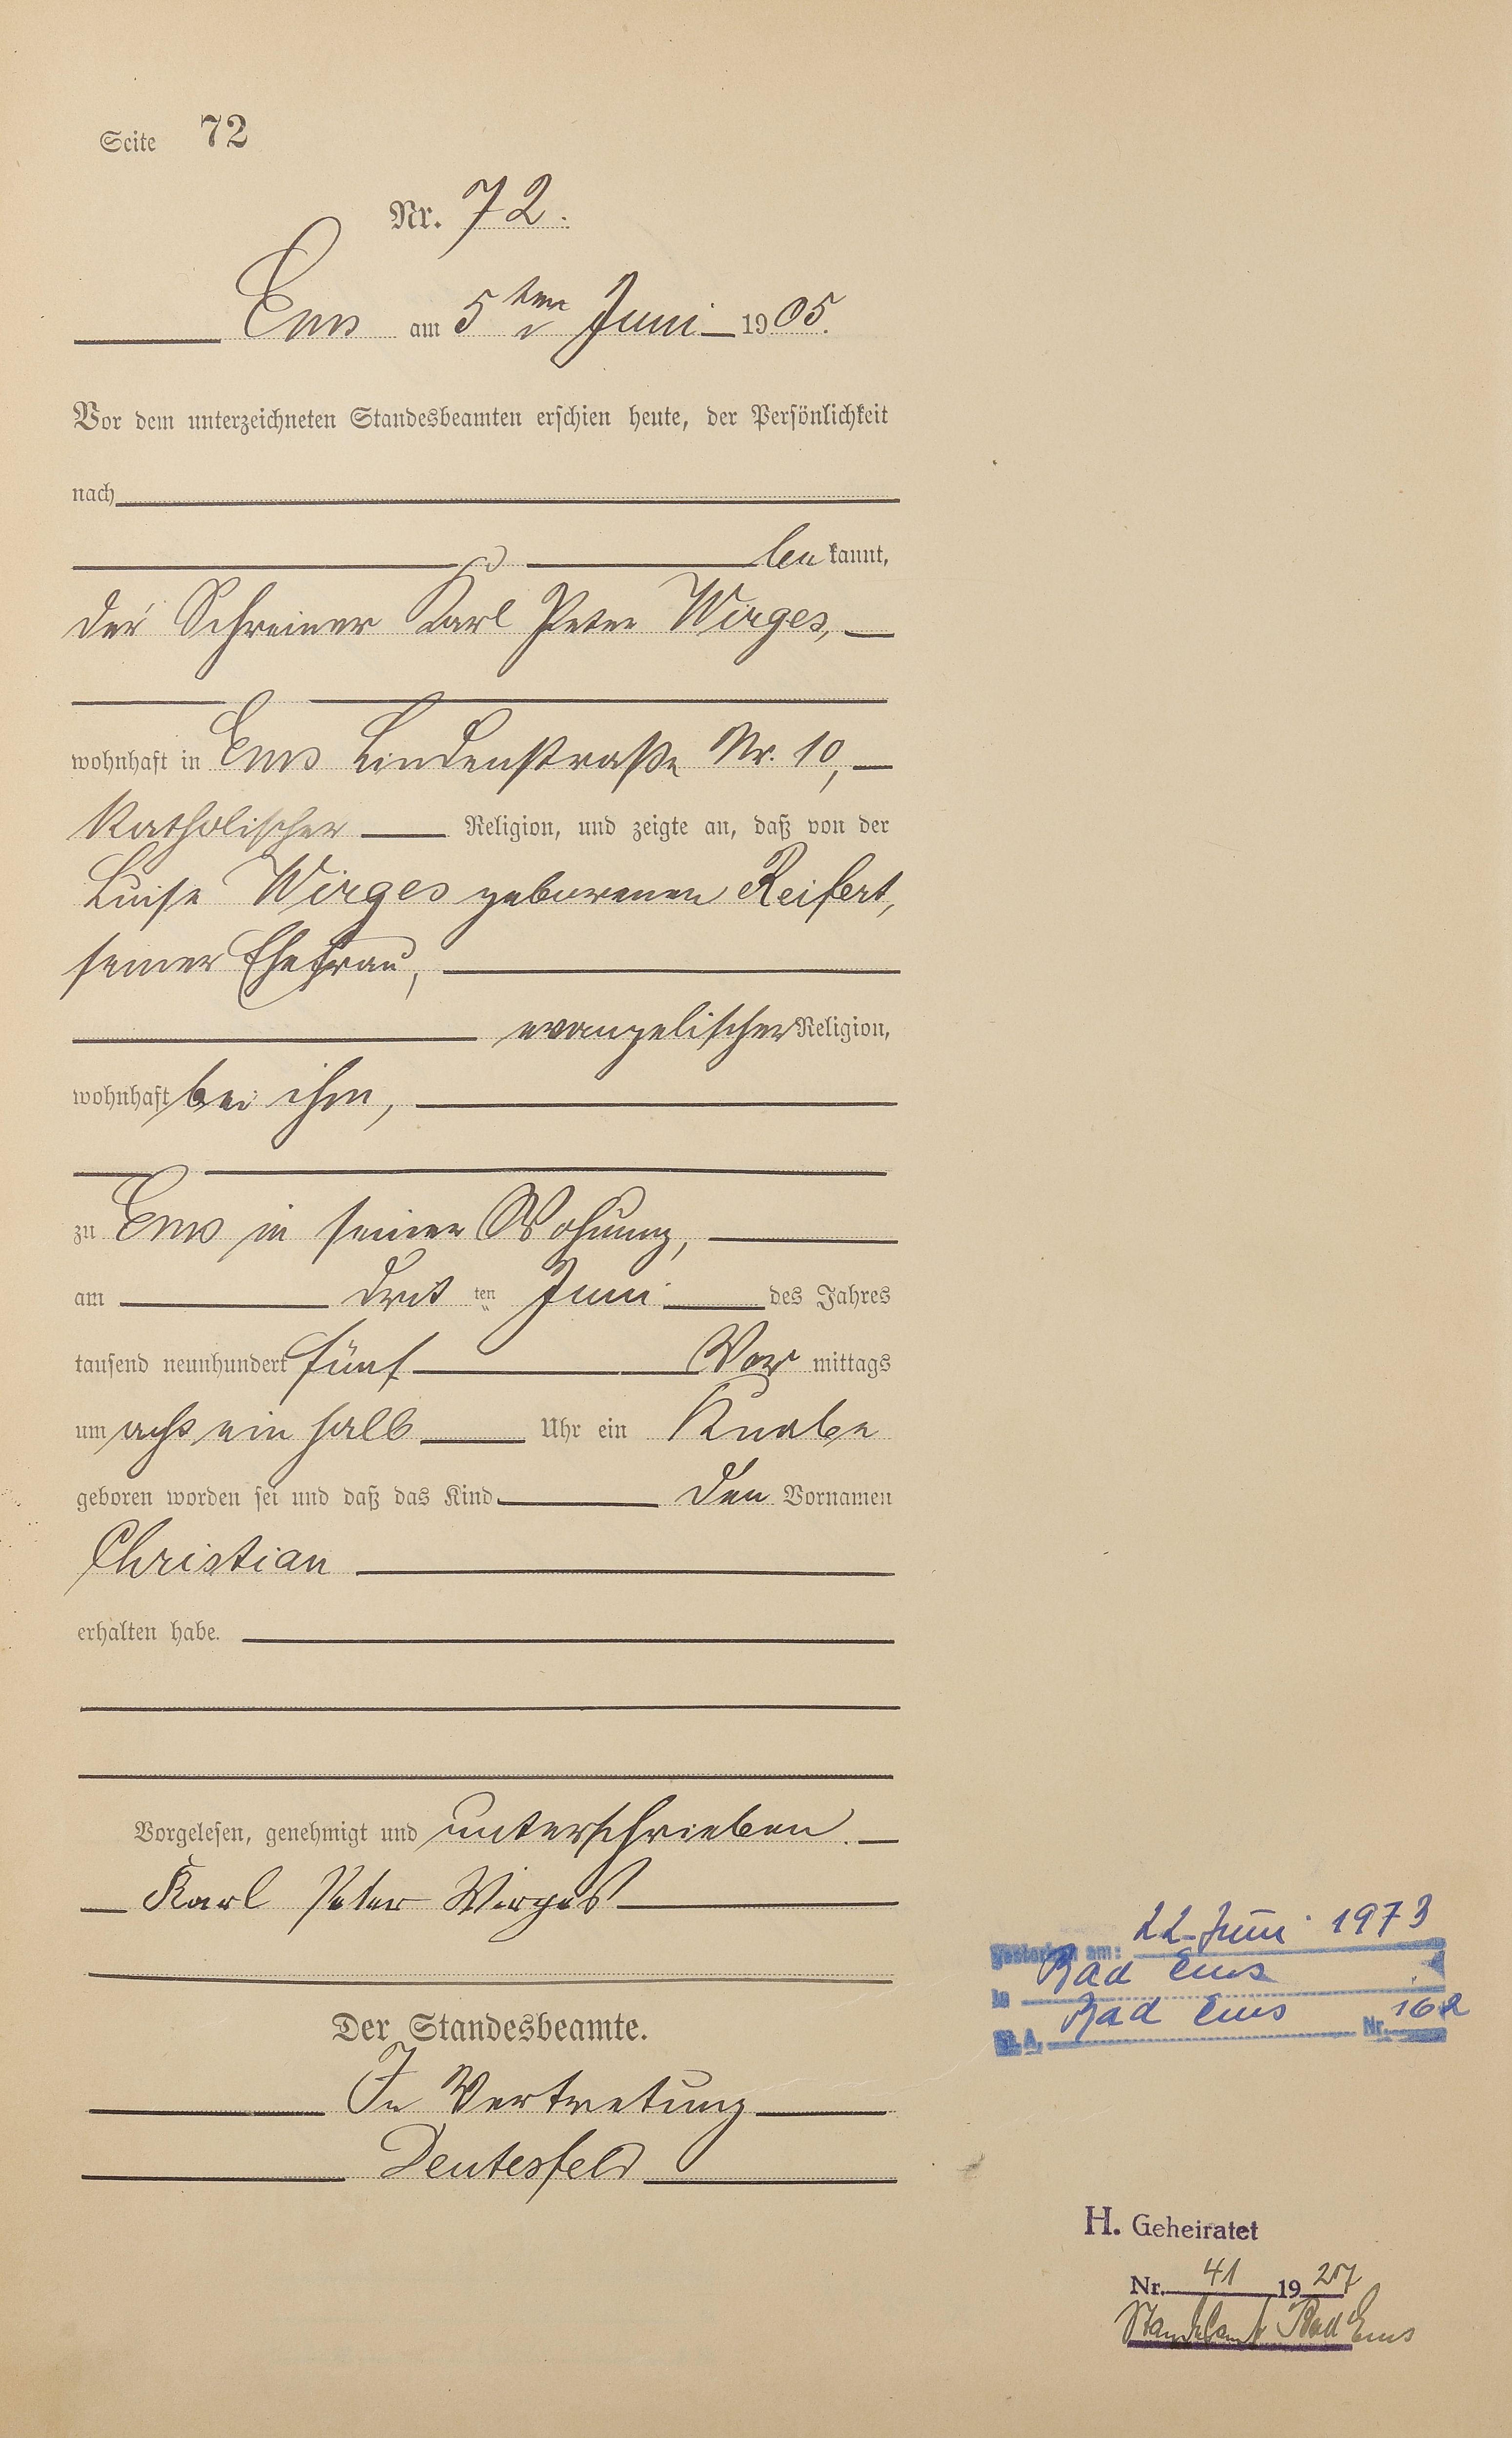 Seite 72
Nr. 72.
Ems am 5ten Juni 1905.
Vor dem unterzeichneten Standesbeamten erschien heute, der Persönlichkeit
nach
bekannt,
der Schreiner Karl Peter Wirges,
wohnhaft in Ems Lindenstraße Nr. 10,
katholischer Religion, und zeigte an, daß von der
Luise Wirges geborenen Reifert,
seiner Ehefrau,
evangelischer Religion,
wohnhaft bei ihm,
zu Ems in seiner Wohnung,
am dritten Juni des Jahres
tausend neunhundert fünf Vormittags
um acht ein halb Uhr ein Knabe
geboren worden sei und daß das Kind den Vornamen
Christian
erhalten habe.
Vorgelesen, genehmigt und unterschrieben.
Karl Peter Wirges
Der Standesbeamte.
In Vertretung
Deutesfeld
Gestorben am: 22. Juni 1973
in Bad Ems
St. A. Bad Ems Nr. 162
H. Geheiratet
Nr. 41 1927
Standesamt Bad Ems